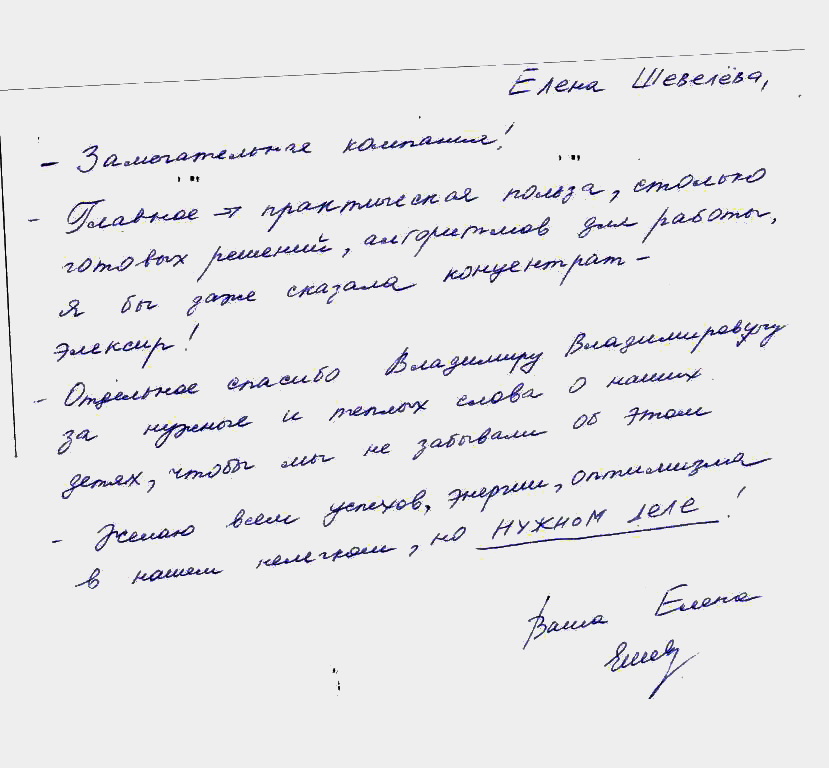 Елена Шевелёва,
- Замечательная компания!
- Главное → практическая польза, столько
готовых решений, алгоритмов для работы,
я бы даже сказала концентрат -
элексир!
- Отдельное спасибо Владимиру Владимировичу
за нужные и теплых слова о наших
детях, чтобы мы не забывали об этом
- Желаю всем успехов, энергии, оптимизма
в нашем нелегком, но НУЖНОМ деле!
Ваша Елена